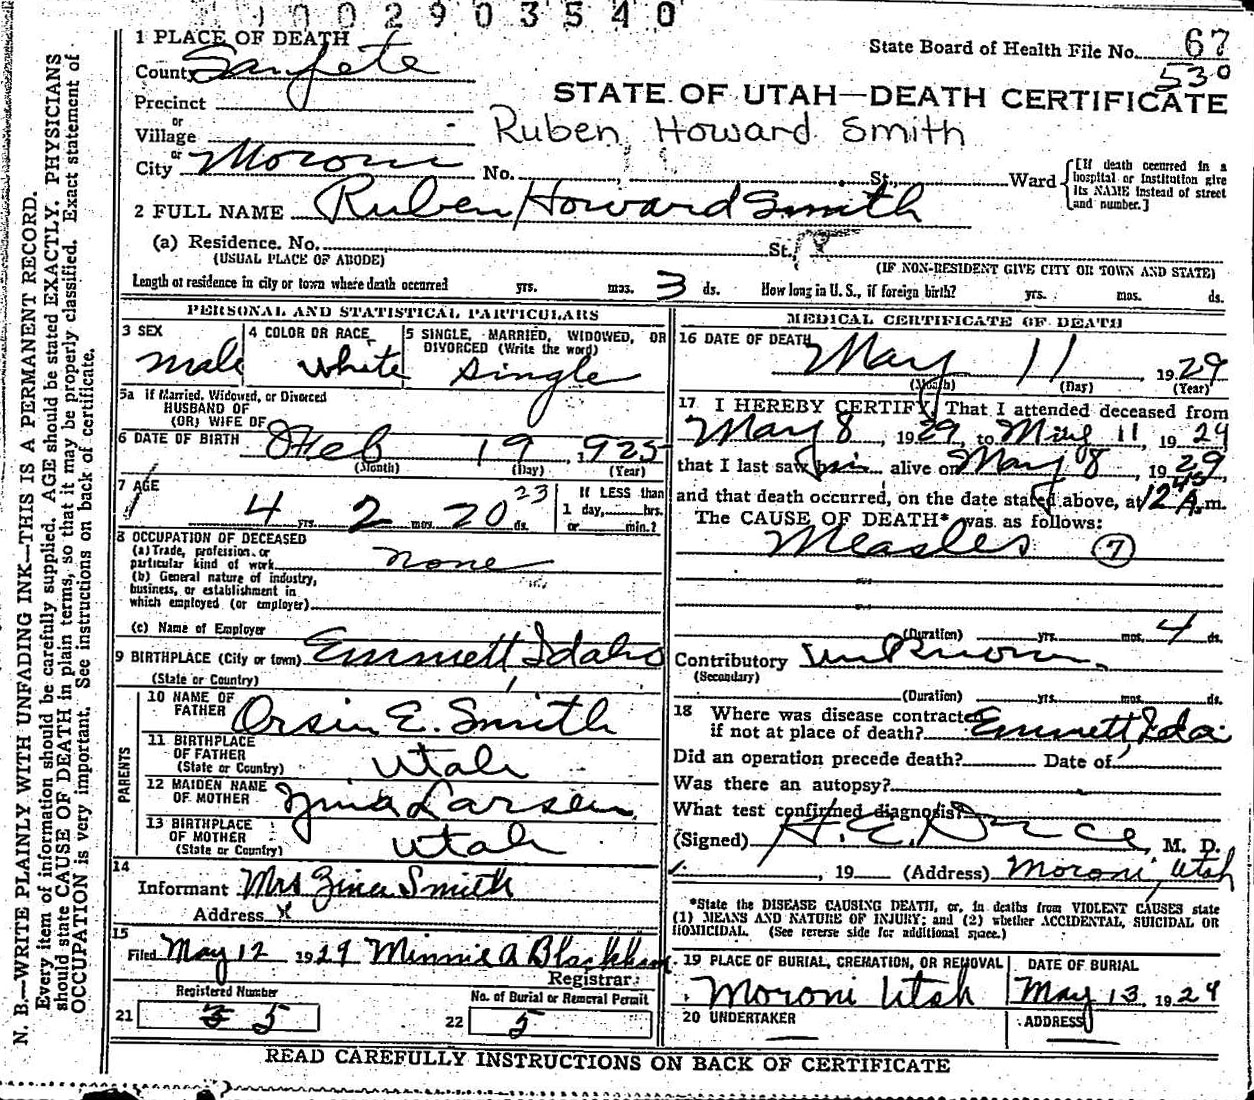 0 0 2 9 0 3 5 4 0
1 PLACE OF DEATH
State Board of Health File No. 67
530
County Sanpete
STATE OF UTAH—DEATH CERTIFICATE
Precinct
or
Village
Ruben Howard Smith
or
City Moroni No. St. Ward
[If death occurred in a hospital or institution give its NAME instead of street and number.]
2 FULL NAME Ruben Howard Smith
(a) Residence. No. St.
(USUAL PLACE OF ABODE) (IF NON-RESIDENT GIVE CITY OR TOWN AND STATE)
Length of residence in city or town where death occurred yrs. mos. 3 ds. How long in U. S., if foreign birth? yrs. mos. ds.
PERSONAL AND STATISTICAL PARTICULARS
3 SEX male
4 COLOR OR RACE white
5 SINGLE, MARRIED, WIDOWED, OR DIVORCED (Write the word) single
5a If Married, Widowed, or Divorced
HUSBAND OF
(OR) WIFE OF
6 DATE OF BIRTH Feb 19 1925
(Month) (Day) (Year)
7 AGE 4 yrs. 2 mos. 20 23 ds.
If LESS than
1 day, hrs.
or min.?
8 OCCUPATION OF DECEASED
(a) Trade, profession, or
particular kind of work none
(b) General nature of industry,
business, or establishment in
which employed (or employer)
(c) Name of Employer
9 BIRTHPLACE (City or town) Emmett, Idaho
(State or Country)
PARENTS
10 NAME OF FATHER Orsin E. Smith
11 BIRTHPLACE OF FATHER (State or Country) Utah
12 MAIDEN NAME OF MOTHER Zina Larsen
13 BIRTHPLACE OF MOTHER (State or Country) Utah
14
Informant Mrs Zina Smith
Address x
15
Filed May 12 1929 Minnie A Blackham
Registrar.
Registered Number
21 5
No. of Burial or Removal Permit
22 5
MEDICAL CERTIFICATE OF DEATH
16 DATE OF DEATH May 11 1929
(Month) (Day) (Year)
17 I HEREBY CERTIFY, That I attended deceased from
May 8, 1929, to May 11, 1929
that I last saw him alive on May 8, 1929
and that death occurred, on the date stated above, at 12 45 A. m.
The CAUSE OF DEATH* was as follows:
Measles 7
(Duration) yrs. mos. 4 ds.
Contributory unknown.
(Secondary)
(Duration) yrs. mos. ds.
18 Where was disease contracted
if not at place of death? Emmett, Ida
Did an operation precede death? Date of
Was there an autopsy?
What test confirmed diagnosis?
(Signed) H. E. , M. D.
, 19 (Address) Moroni, Utah
*State the DISEASE CAUSING DEATH, or, in deaths from VIOLENT CAUSES state
(1) MEANS AND NATURE OF INJURY; and (2) whether ACCIDENTAL, SUICIDAL OR
HOMICIDAL. (See reverse side for additional space.)
19 PLACE OF BURIAL, CREMATION, OR REMOVAL
Moroni Utah
DATE OF BURIAL
May 13, 1929
20 UNDERTAKER
ADDRESS
READ CAREFULLY INSTRUCTIONS ON BACK OF CERTIFICATE
N. B.—WRITE PLAINLY WITH UNFADING INK—THIS IS A PERMANENT RECORD.
Every item of information should be carefully supplied. AGE should be stated EXACTLY. PHYSICIANS
should state CAUSE OF DEATH in plain terms, so that it may be properly classified. Exact statement of
OCCUPATION is very important. See instructions on back of certificate.